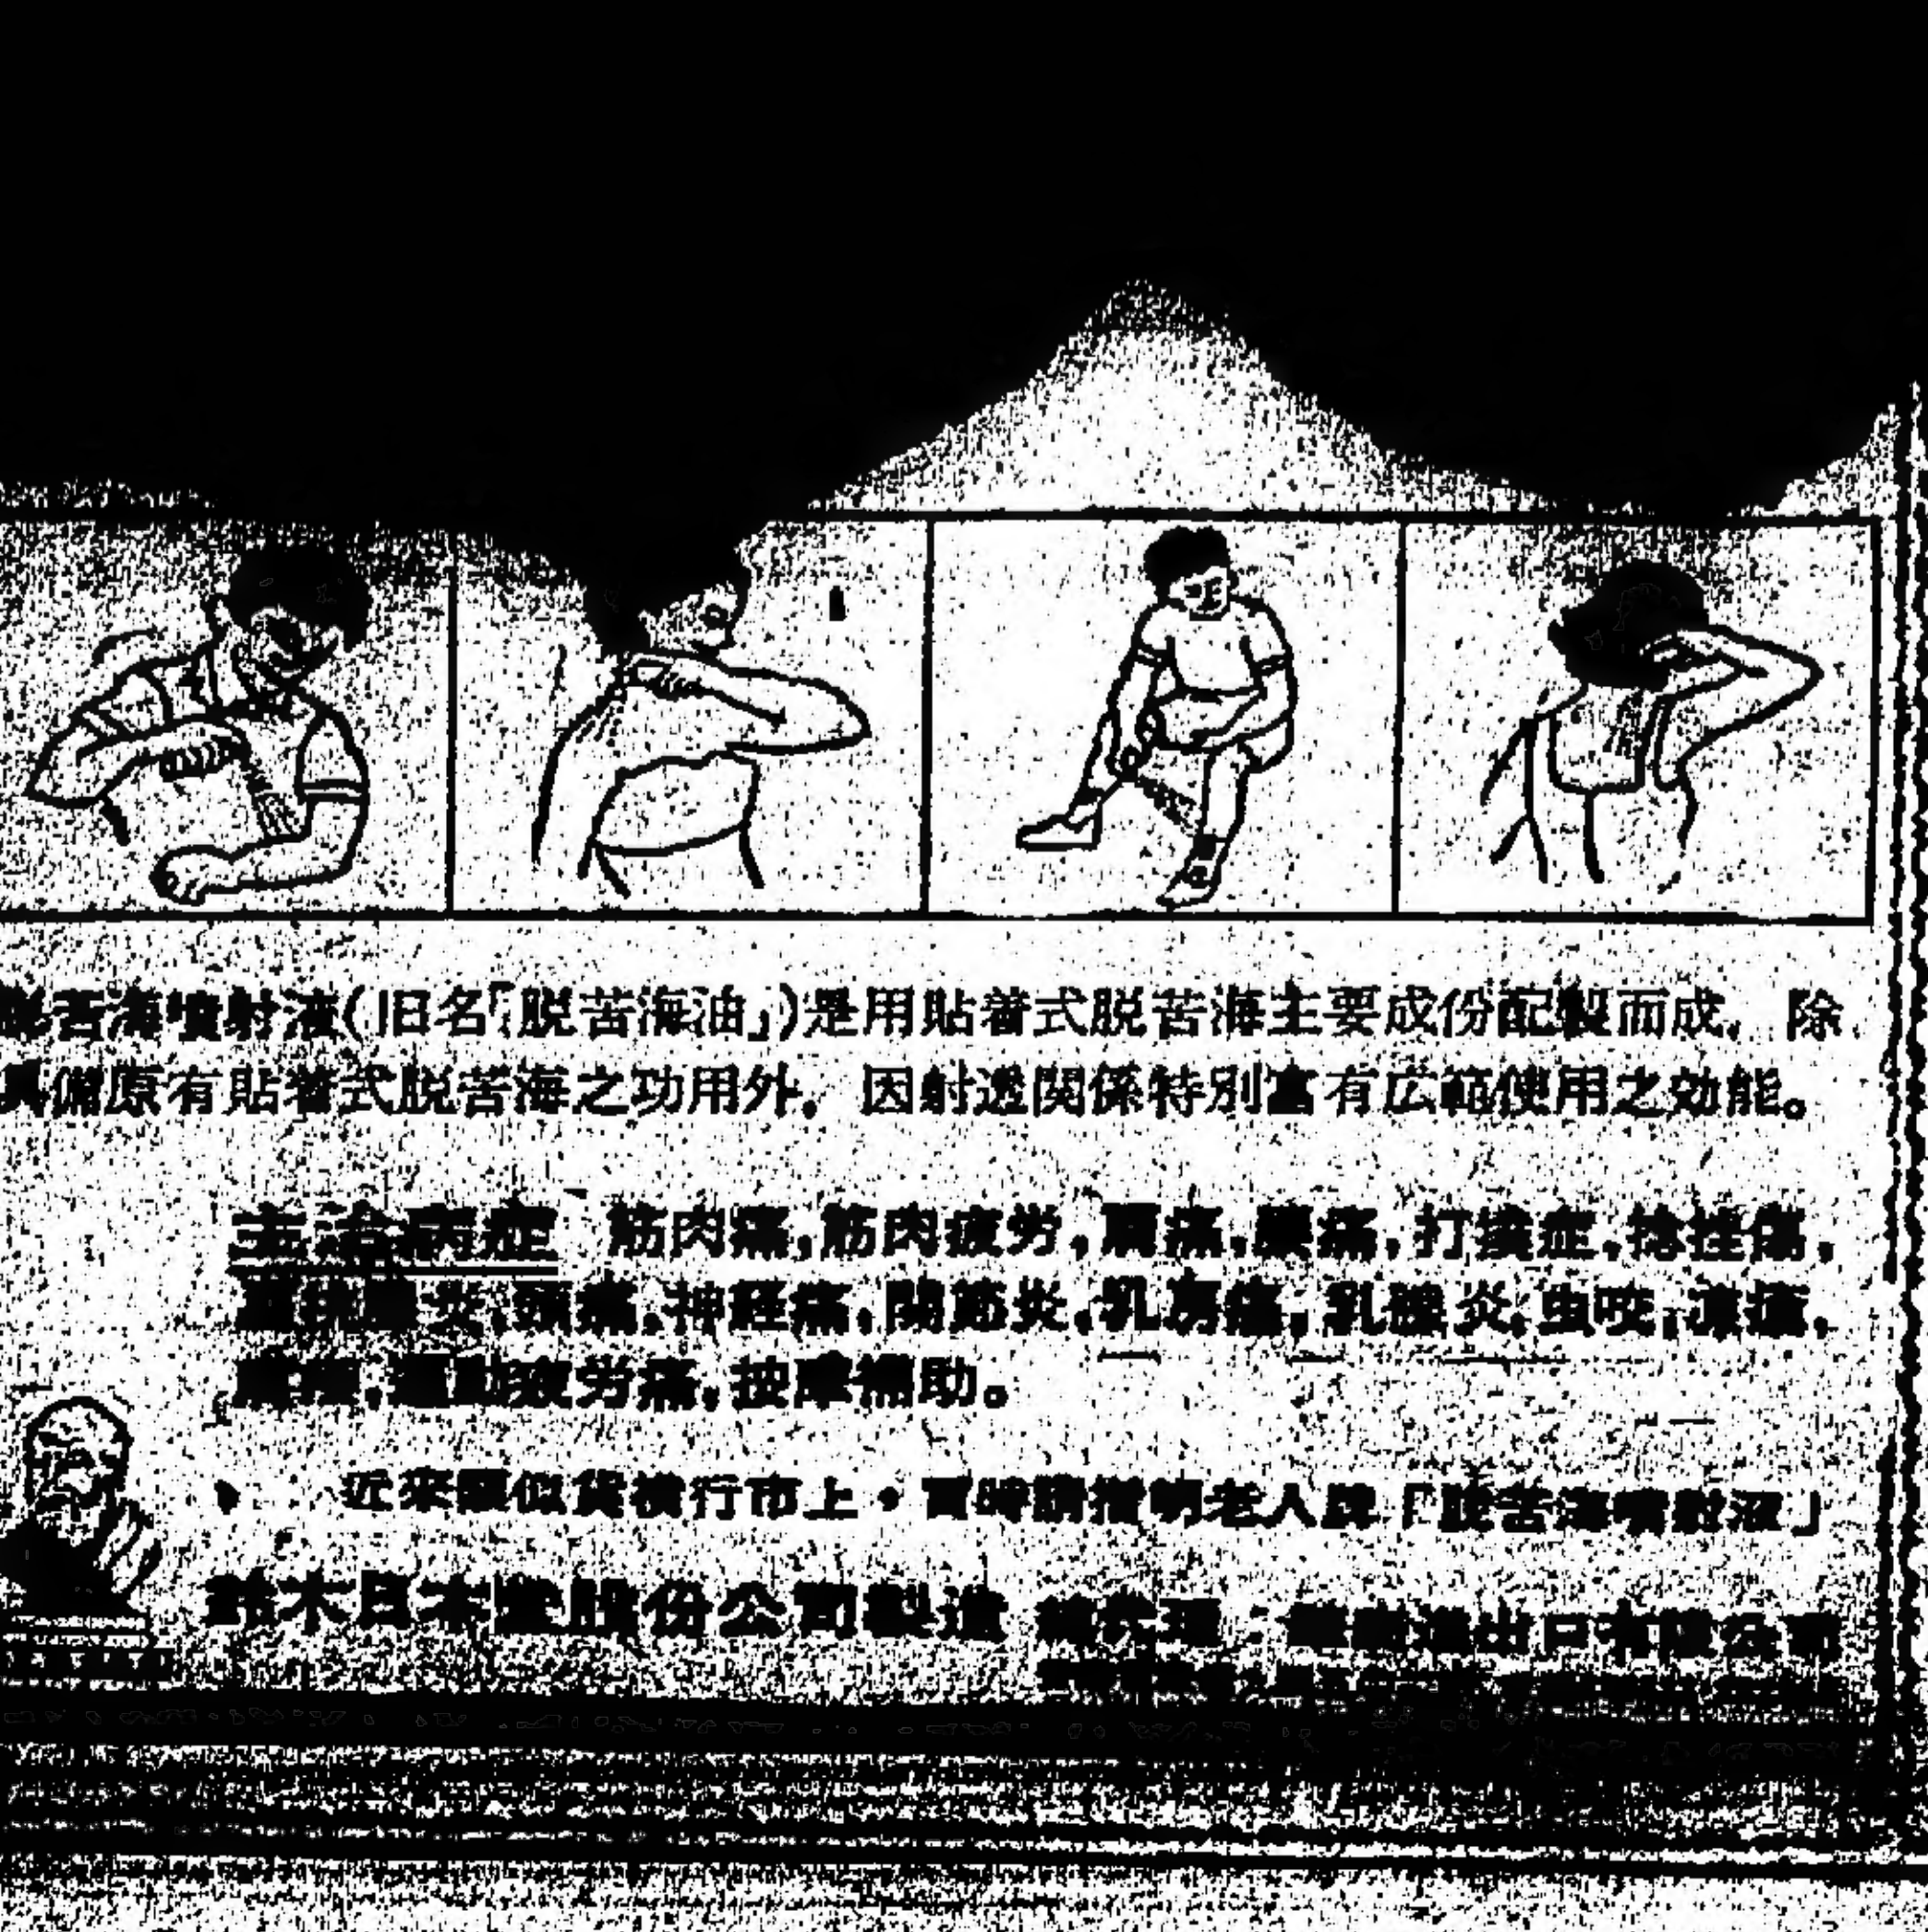 脱苦海噴射液(旧名「脱苦海油」)是用貼着式脱苦海主要成份配製而成，除
具備原有貼着式脱苦海之功用外，因射透関係特別富有広範使用之効能。
主治病症 筋肉痛,筋肉疲労,肩痛,腰痛,打撲症,捻挫傷,
頭痛,神経痛,関節炎,乳房痛,乳腺炎,虫咬,凍瘡,
運動疲労痛,按摩補助。
近來類似貨横行市上，買時請擋明老人牌「脱苦海噴射液」
鈴木日本堂股份公司製造 總代理：進出口有限公司